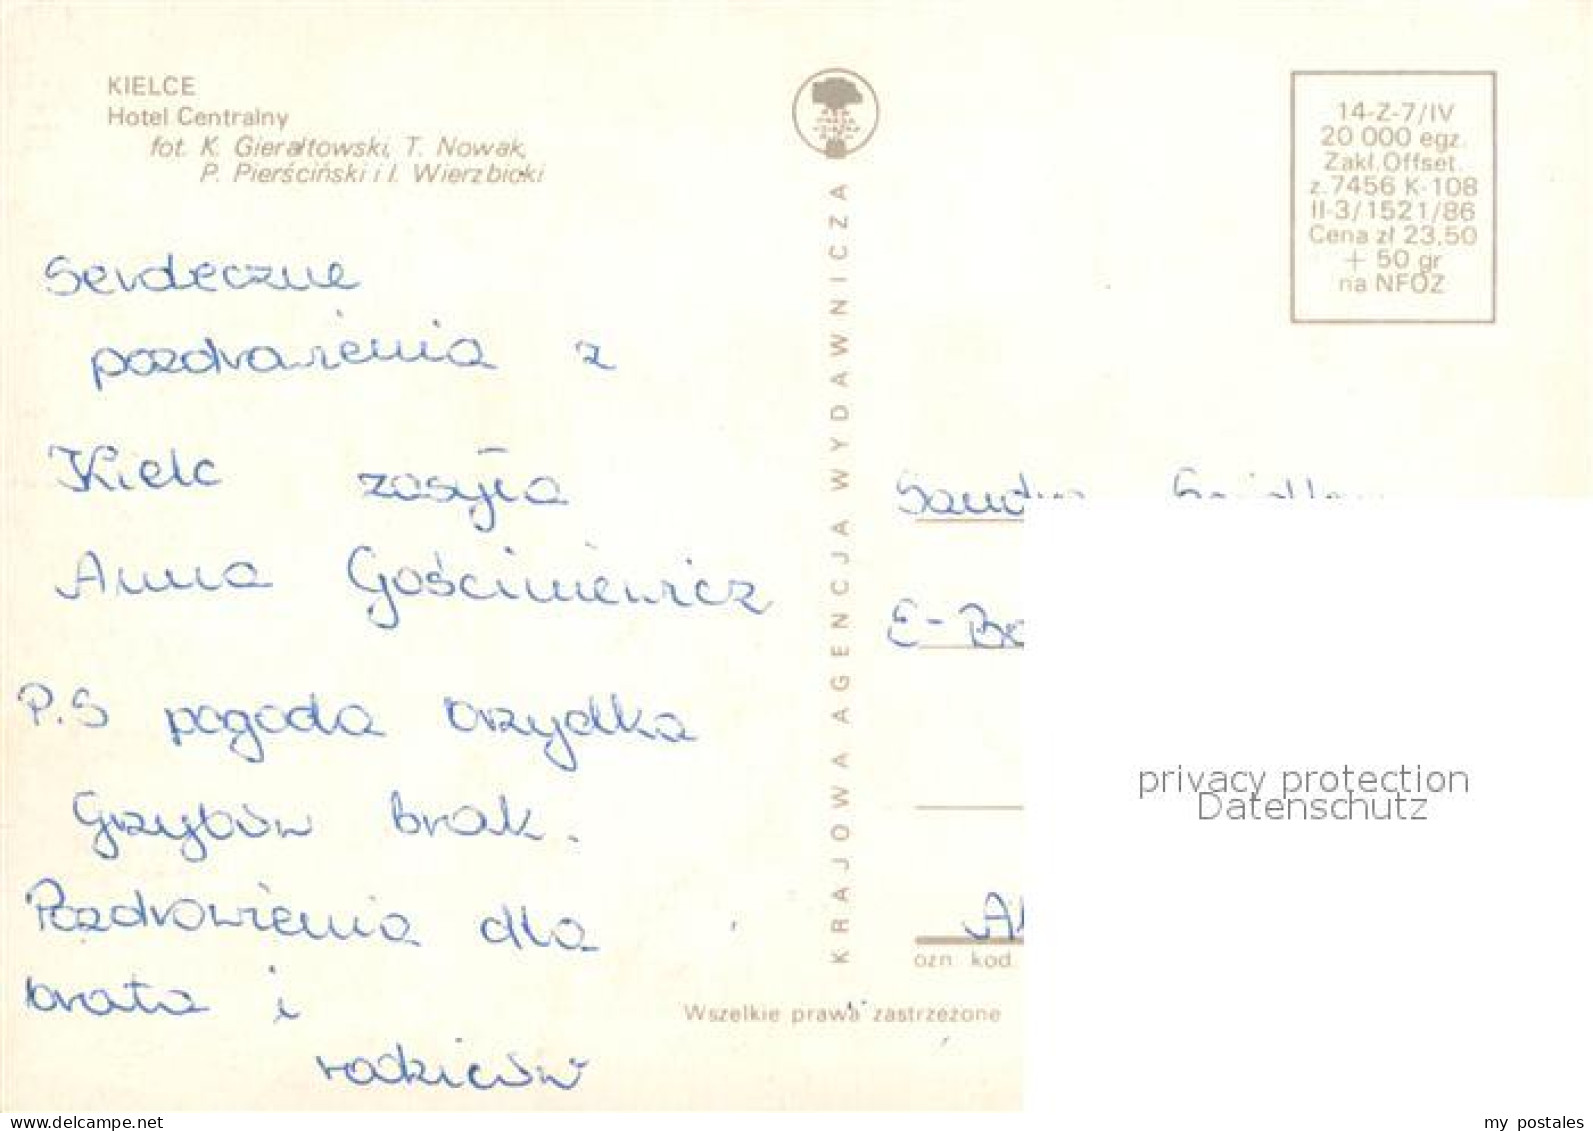 KIELCE
Hotel Centralny
fot. K. Gierałtowski, T. Nowak,
P. Pierściński i I. Wierzbicki
Serdeczne
pozdrowienia z
Kielc zasyła
Anna Gościniewicz
P.S pogoda brzydka
Grzybów brak.
Pozdrowienia dla
brata i
rodziców
KRAJOWA AGENCJA WYDAWNICZA
14-Z-7/IV
20 000 egz.
Zakł.Offset.
z.7456 K-108
II-3/1521/86
Cena zł 23,50
+ 50 gr
na NFOZ
Sandra
E-
privacy protection
Datenschutz
ozn. kod.
Wszelkie prawa zastrzeżone
www.delcampe.net
my_postales